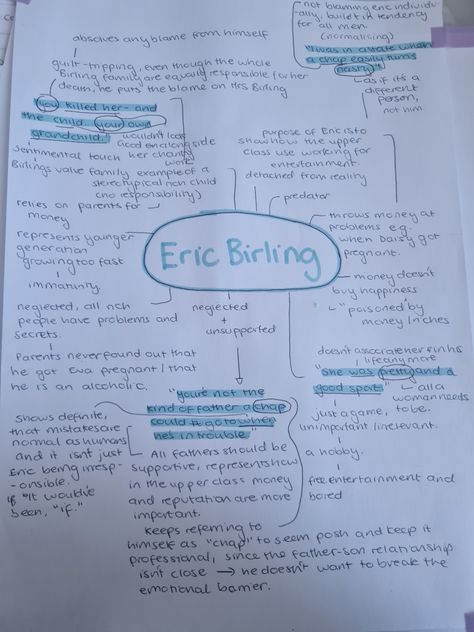 absolves any blame from himself
guilt-tripping, even though the whole
Birling family are equally responsible for her
death, he puts the blame on Mrs Birling
"You killed her- and
the child.. your own
grandchild.." wouldn't look
good on alongside
sentimental touch her charity
work
Birlings value family example of a
stereotypical rich child
(no responsibility)
relies on parents for
money
represents younger
generation
growing too fast
immaturity.
neglected, all rich
people have problems and
secrets.
Parents never found out that
he got Eva pregnant / that
he is an alcoholic.
Shows definite,
that mistakes are
normal as humans
and it isn't just
Eric being irresp-
onsible.
if "It would've
been, "if."
not blaming eric individu-
ally, built in tendency
for all men
(normalising)
"I was in a state when
a chap easily turns
nasty"
as if it's a
different
person,
not him
purpose of Eric is to
show how the upper
class use working for
entertainment.
detached from reality
predator
Eric Birling
throws money at
problems e.g.
when Daisy got
pregnant.
money doesn't
buy happiness
"poisoned" by
money / riches
neglected
+
unsupported
doesn't
life anymore
"She was pretty and a
good sport" - all a
woman needs
to be.
just a game,
unimportant / irrelevant.
a hobby.
free entertainment and
bored
"you're not the
kind of father a chap
could go to when
he's in trouble"
All fathers should be
supportive, represents how
in the upper class money
and reputation are more
important.
keeps referring to
himself as "chap" to seem posh and keep it
professional, since the father-son relationship
isn't close → he doesn't want to break the
emotional barrier.